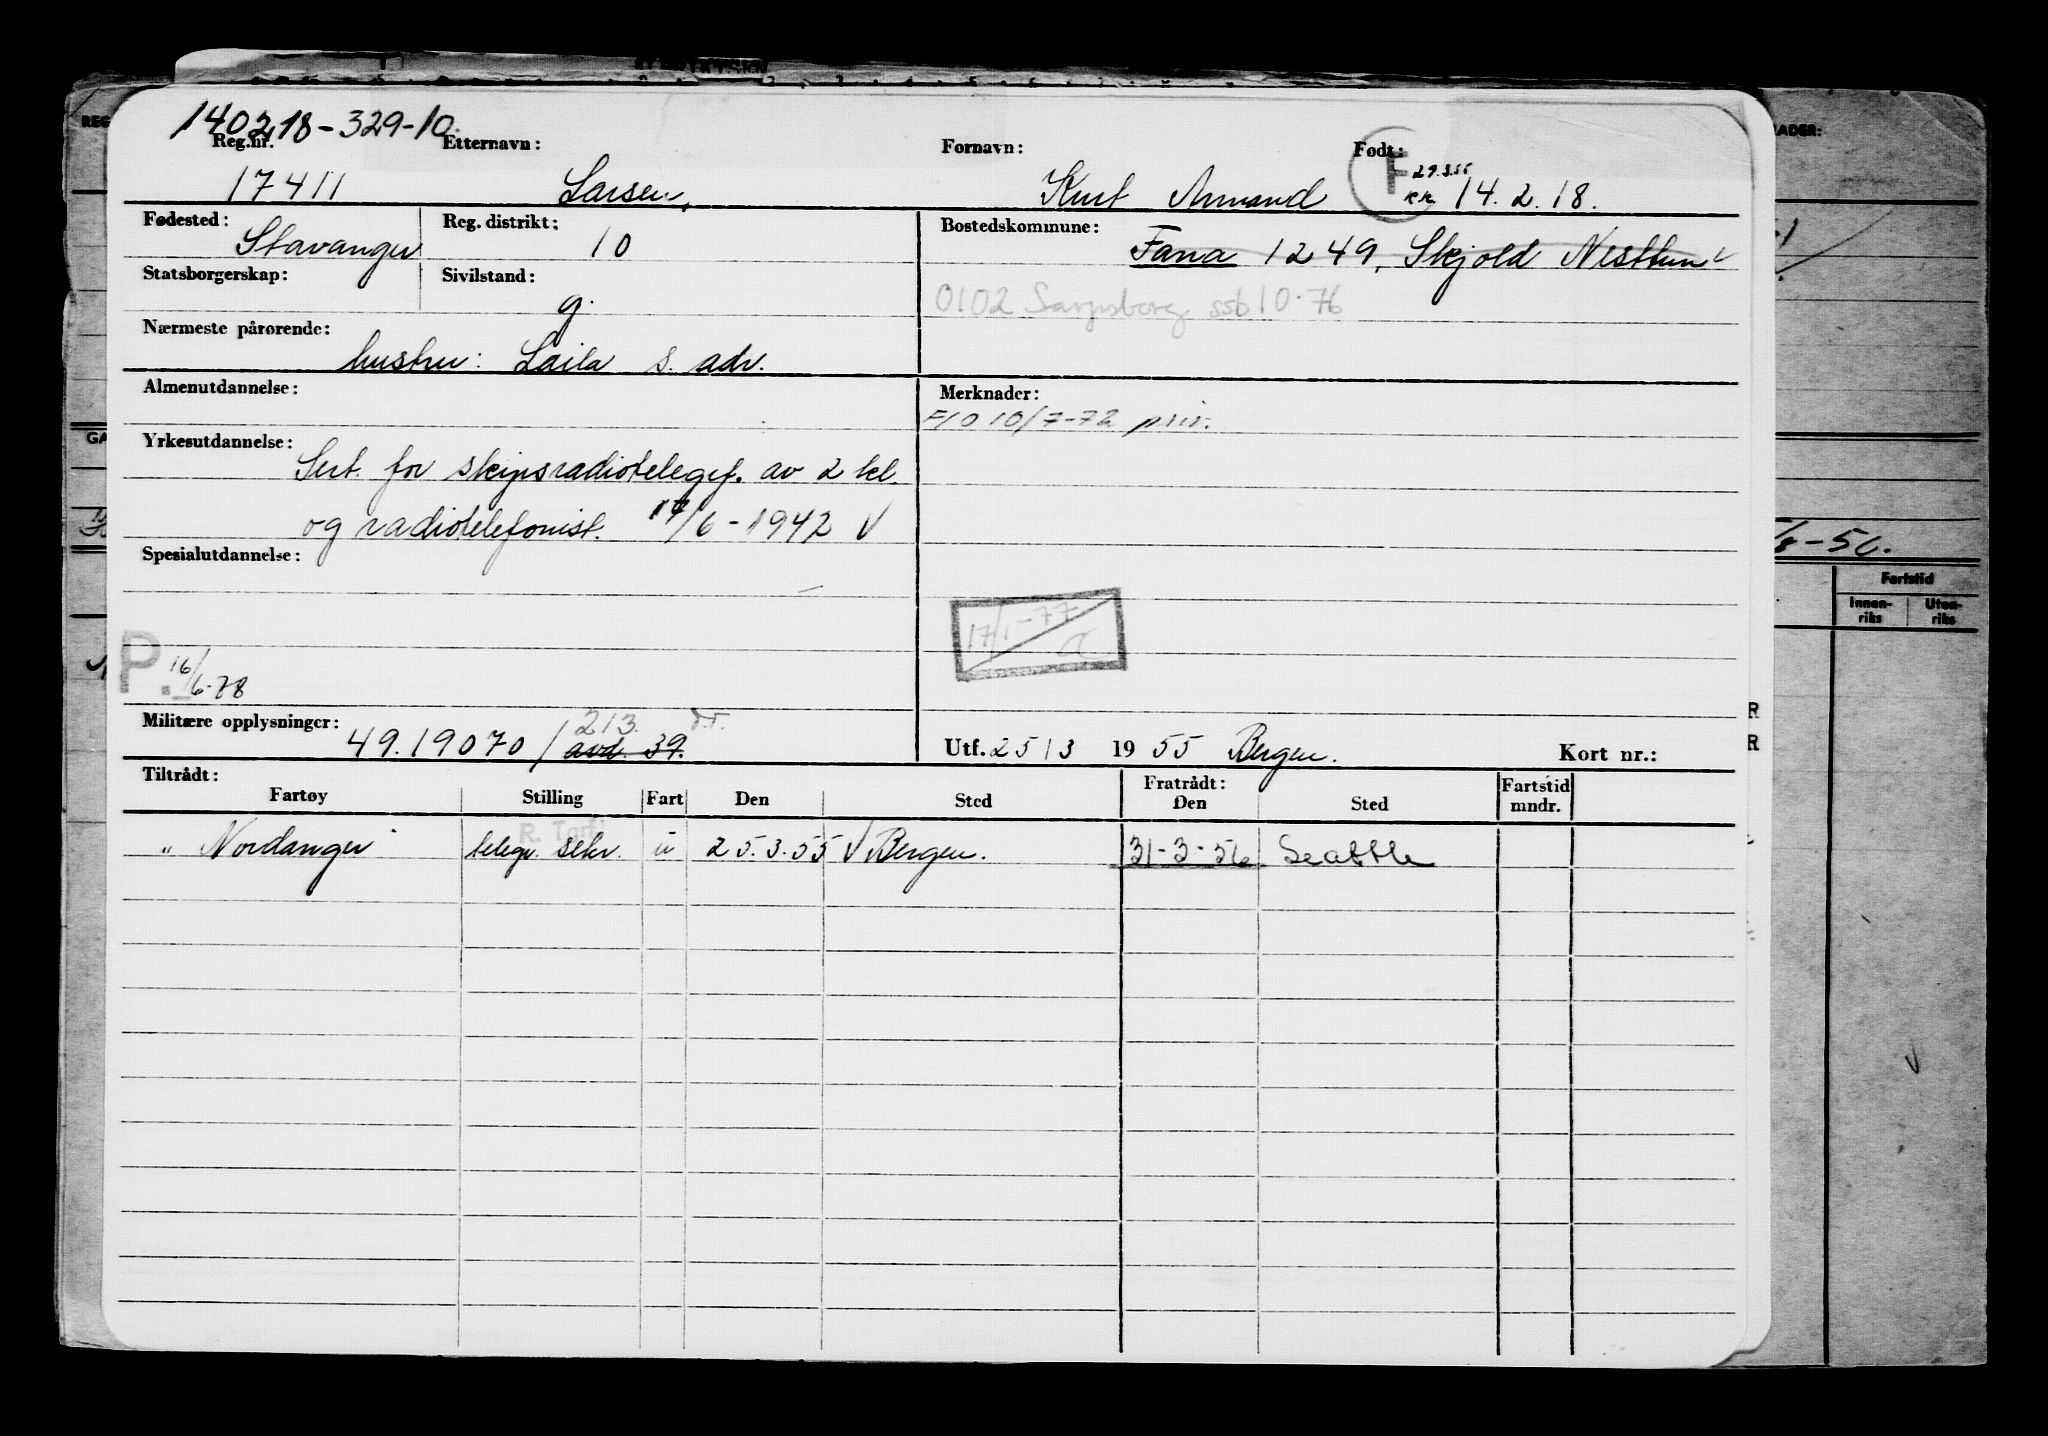 140218-329-10
Reg.nr. Etternavn: Fornavn: Født:
17411 Larsen, Kurt Armand F 29.3.56 14.2.18.
Fødested: Reg. distrikt: Bostedskommune:
Stavanger 10 Fana 1249, Skjold Nesttun
Statsborgerskap: Sivilstand:
g. 0102 Sarpsborg ssb 10-76
Nærmeste pårørende:
hustru: Laila s. adr.
Almenutdannelse: Merknader:
F/O 10/7-72 priv.
Yrkesutdannelse:
Sert. for skipsradiotelegrf. av 2 kl.
og radiotelefonist. 17/6-1942 V
Spesialutdannelse:
17/1-77
P. 16/6-78
Militære opplysninger: 213.
49.19070/ avd. 39. Utf. 25/3 1955 Bergen. Kort nr.:
Tiltrådt: Fratrådt: Fartstid
Fartøy Stilling Fart Den Sted Den Sted mndr.
" Nordanger telegr. sekr. u 25.3.55 V Bergen. 31-3-56 Seattle
REG
GA
ADER:
/8-56.
Fartstid
Innen-
riks
Uten-
riks
R
R